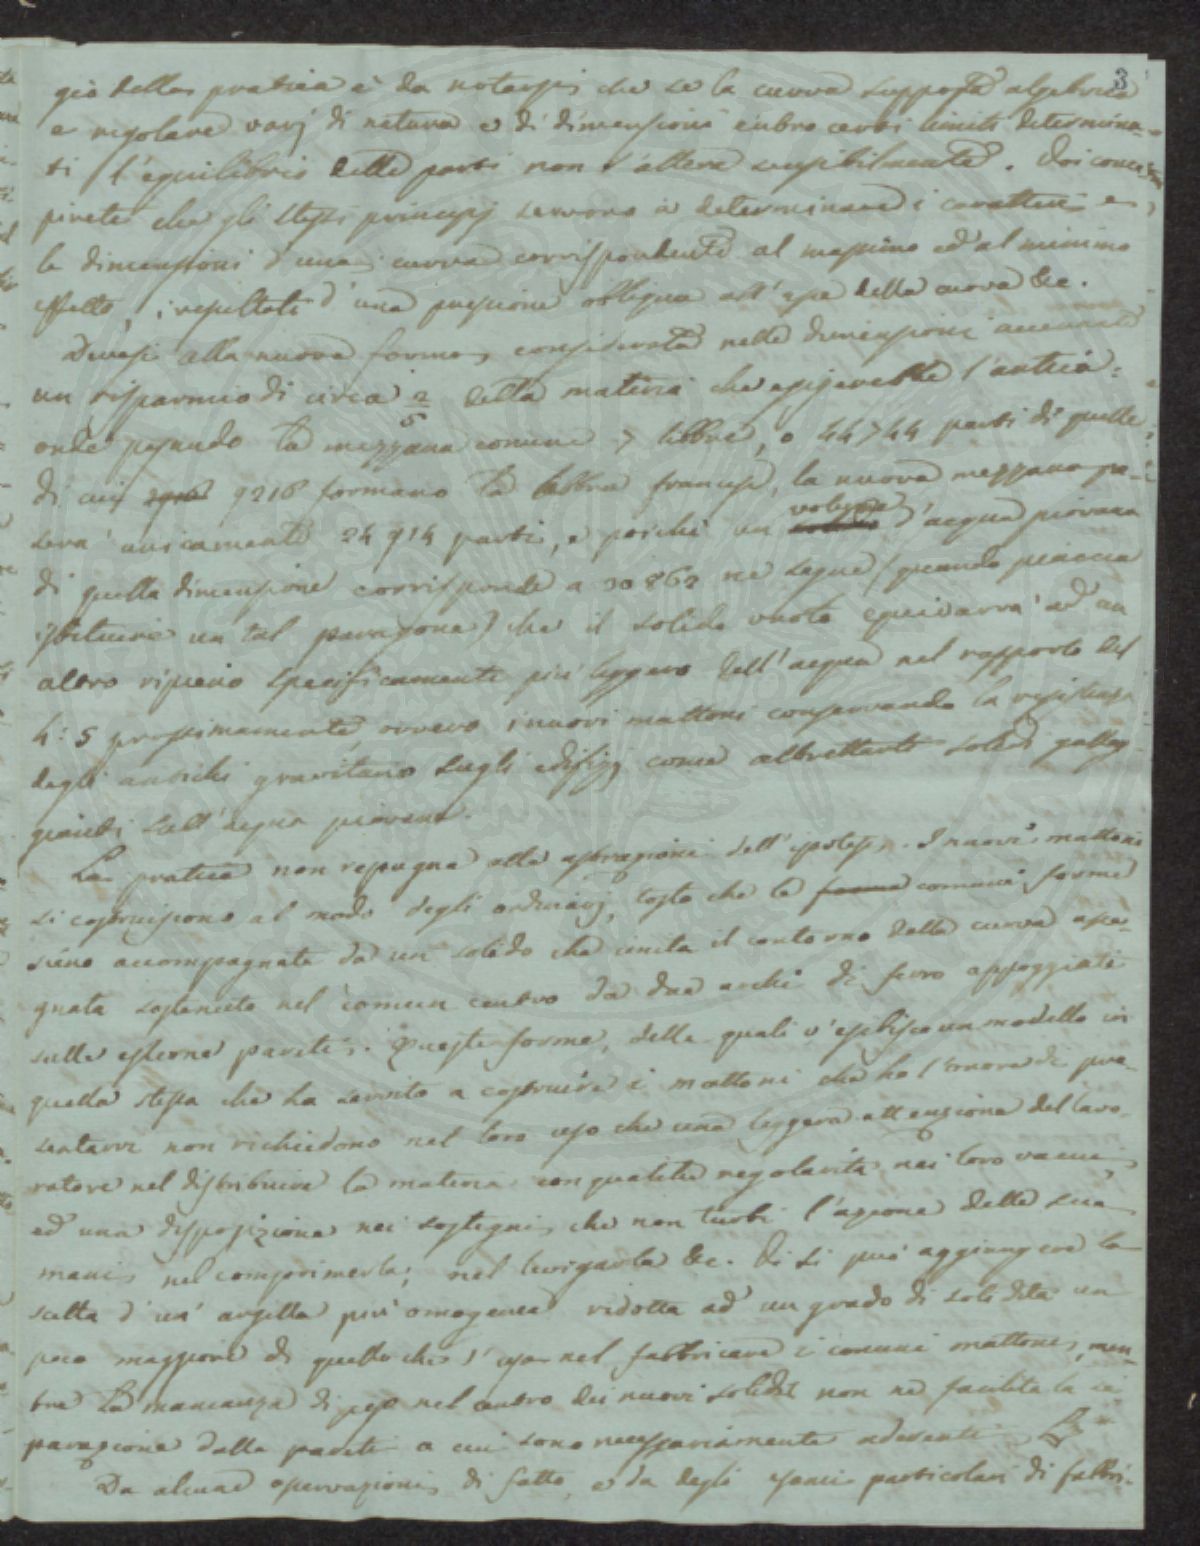 3
gio della pratica è da notarsi che se la curva supposta algebrica
e regolare varj di natura e di dimensioni entro certi limiti determina-
ti l'equilibrio delle parti non s'altera sensibilmente. Voi
pirete che gli stessi principj servono a determinare i caratteri e
le dimensioni d'una curva corrispondente al massimo ed al minimo
effetto, i resultati d'una pressione obliqua all'asse della curva &c.
Devesi alla nuova forma, considerata nelle dimensioni accennate
un risparmio di circa 2/5 della materia che esigerebbe l'antica:
onde pesando la mezzana comune 7 libbre, o 44744 parti di quelle
di cui 9216 formano la libbra francese, la nuova mezzana pe-
serà unicamente 24914 parti, e poichè un volume d'acqua piovana
di quella dimensione corrisponde a 30862 ne segue (quando piaccia
istituire un tal paragone) che il solido vuoto equivarrà ad un
altro ripieno specificamente più leggero dell'acqua nel rapporto del
4:5 prossimamente, ovvero i nuovi mattoni conservando la resistenza
degli antichi gravitano sugli edifizj come altrettanti solidi galleg-
gianti sull'acqua piovana.
La pratica non repugna alle astrazioni dell'ipotesi. I nuovi mattoni
si costruiscono al modo degli ordinarj, tosto che le forme comuni forme
sieno accompagnate da un solido che imita il contorno della curva asse-
gnata sostenuto nel comun centro da due archi di ferro appoggiati
sulle esterne pareti. Queste forme, delle quali v'esibisco un modello in
quella stessa che ha servito a costruire i mattoni che ho l'onore di pre-
sentarvi non richiedono nel loro uso che una leggera attenzione del lavo-
ratore nel distribuire la materia con qualche regolarità nei loro vacui,
ed una disposizione nei sostegni, che non turbi l'azione delle sue
mani nel comprimerla, nel levigarla &c. Vi si può aggiungere la
scelta d'un'argilla più omogenea ridotta ad un grado di solidità un
poco maggiore di quello che s'usa nel fabbricare i comuni mattoni, men-
tre la mancanza di peso nel centro dei nuovi solidi non ne facilita la se-
parazione dalle pareti a cui sono necessariamente aderenti.
Da alcune osservazioni di fatto, e da degli esami particolari di fabbri-